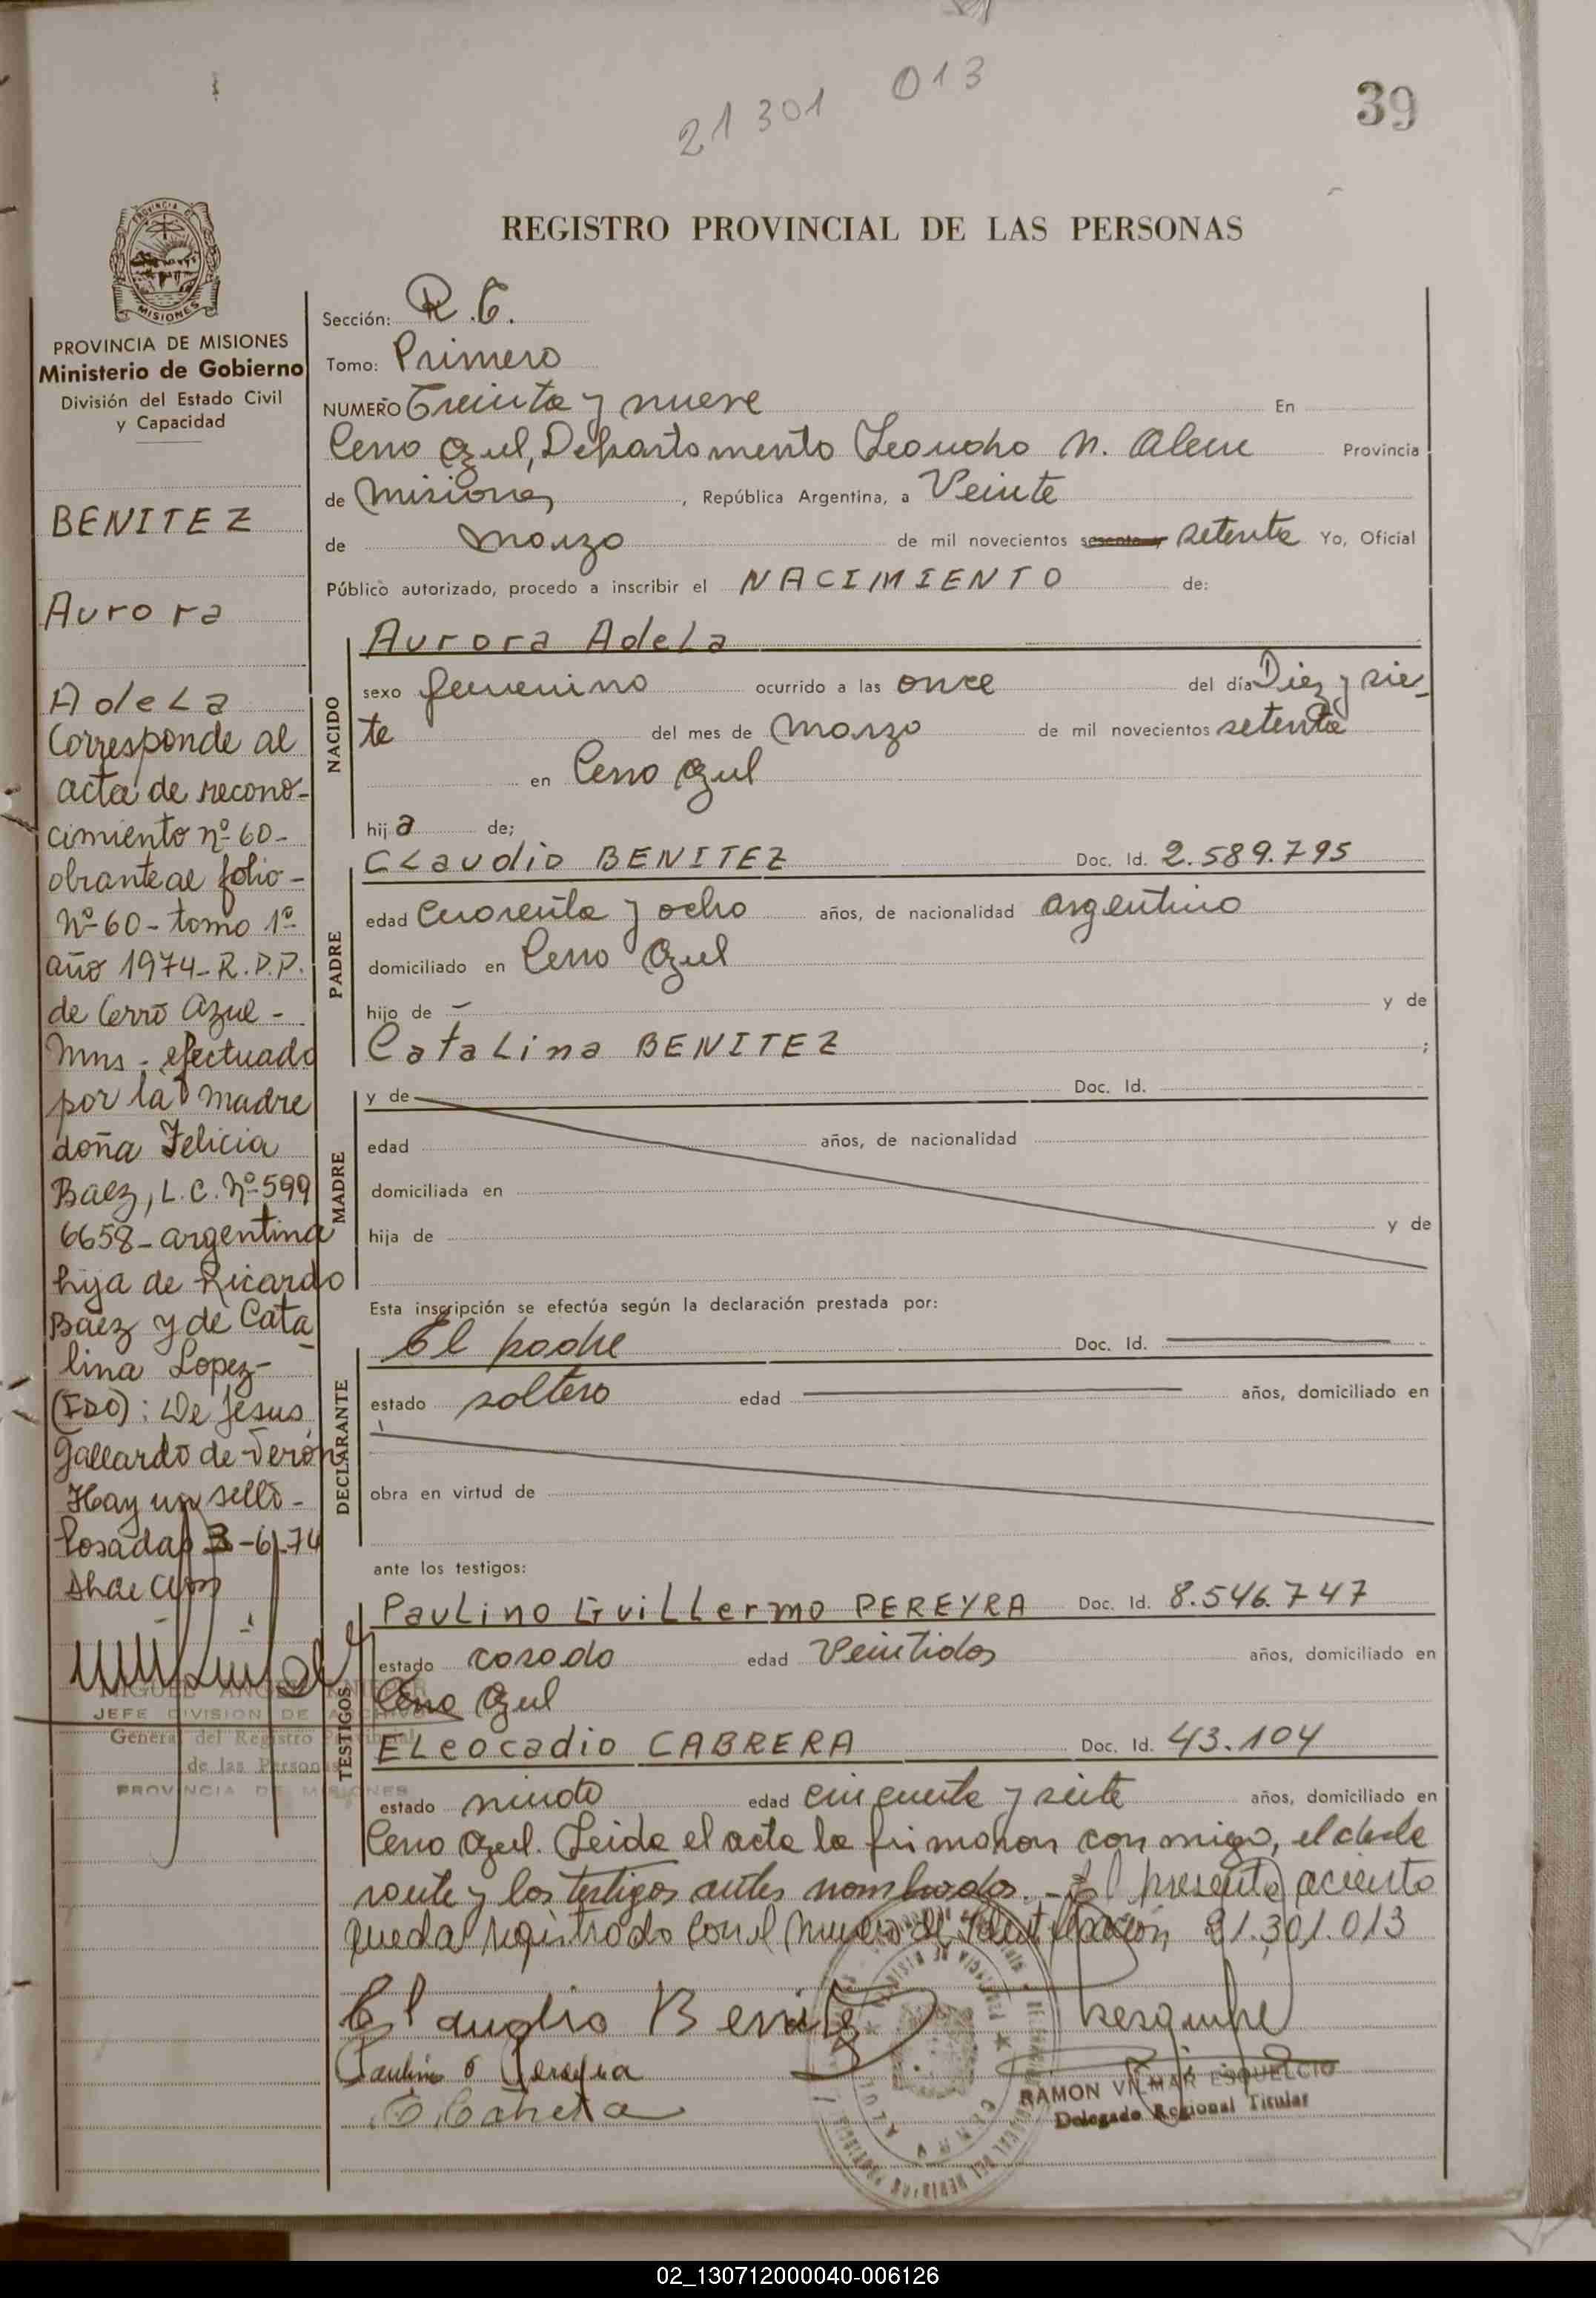 21 301 013
39
REGISTRO PROVINCIAL DE LAS PERSONAS
MISIONES
PROVINCIA DE MISIONES
Ministerio de Gobierno
División del Estado Civil
y Capacidad
BENITEZ
Aurora
Adela
Corresponde al
acta de recono-
cimiento nº 60-
obrante al folio-
Nº 60- tomo 1º
año 1974- R.P.P.
de Cerro Azul-
Mns- efectuado
por la madre
doña Felicia
Baez, L.C. Nº 599
6658- argentina
hija de Ricardo
Baez y de Cata
lina Lopez-
(FDO): De Jesus
Gallardo de Verón
Hay un sello-
Posadas 3-6-74
JEFE DIVISION DE ARCHIVO
General del Registro Provincial
de las Personas
PROVINCIA DE MISIONES
Sección: R.C.
Tomo: Primero
NUMERO Treinta y nueve En
Cerro Azul, Departamento Leandro N. Alem Provincia
de Misiones, República Argentina, a Veinte
de Marzo de mil novecientos sesenta y setenta Yo, Oficial
Público autorizado, procedo a inscribir el NACIMIENTO de:
NACIDO
Aurora Adela
sexo femenino ocurrido a las once del día Diez y sie-
te del mes de Marzo de mil novecientos setenta
en Cerro Azul
hija de;
PADRE
Claudio BENITEZ Doc. Id. 2.589.795
edad Cuarenta y ocho años, de nacionalidad argentino
domiciliado en Cerro Azul
hijo de - y de
Catalina BENITEZ ;
MADRE
y de Doc. Id.
edad años, de nacionalidad
domiciliada en
hija de y de
Esta inscripción se efectúa según la declaración prestada por:
DECLARANTE
El padre Doc. Id.
estado soltero edad años, domiciliado en
obra en virtud de
ante los testigos:
TESTIGOS
Paulino Guillermo PEREYRA Doc. Id. 8.546.747
estado casado edad Veintidos años, domiciliado en
Cerro Azul
Eleocadio CABRERA Doc. Id. 43.104
estado viudo edad cincuenta y siete años, domiciliado en
Cerro Azul. Leida el acta la firmaron conmigo, el decla
rante y los testigos antes nombrados.- El presente aciento
queda registrado con el numero de Identificación 21.301.013
Claudio Benitez
Paulino G Pereyra
E. Cabrera
RAMON VILMAR ESQUELCIO
Delegado Regional Titular
02_130712000040-006126